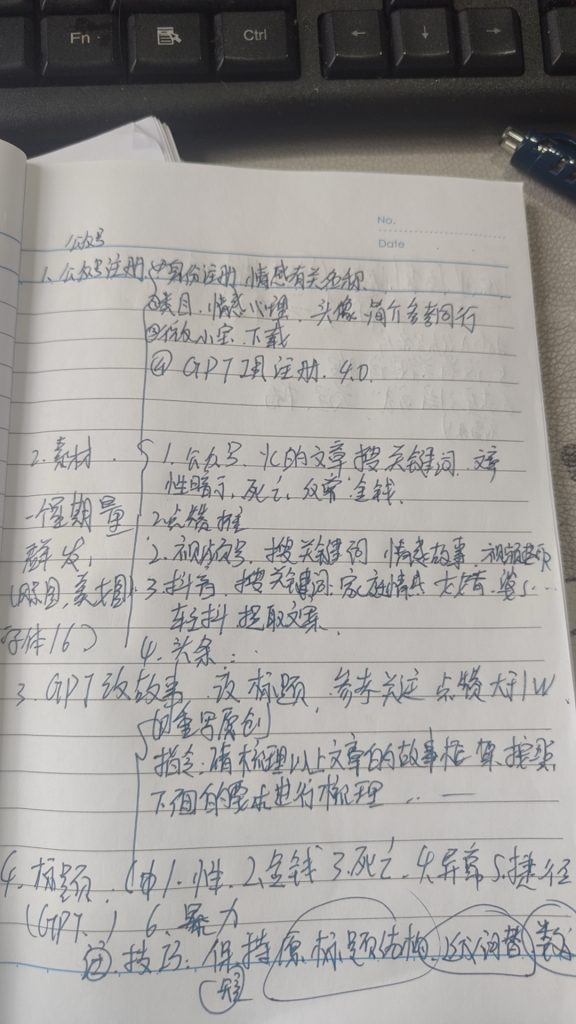 Fn
Ctrl
←
↓
→
No.
Date
公众号
1. 公众号注册 ①身份注册 情感有关名称
②类目、情感心理、头像 简介参考同行
③ 小宝 下载
④ GPT 注册. 4.0.
2. 素材 1. 公众号、 的文章 搜关键词
性暗示, 死亡, 金钱.
一个星期量 2. 点赞
群发, 2. 视频号, 搜关键词 情感故事
3. 抖音, 搜关键词. 家庭情感
字体16) 轻抖 提取文案
4. 头条 :
3. GPT改故事 改标题, 参考关注 点赞大于1W
的重写原创
指令: 请梳理以上文章的故事框架, 按照
下面的要求进行梳理 ... —
4. 标题. 1. 性. 2. 金钱 3. 死亡. 4. 异常 5. 捷径
(GPT.) 6. 暴力
技巧: 保持原标题结构. 词替